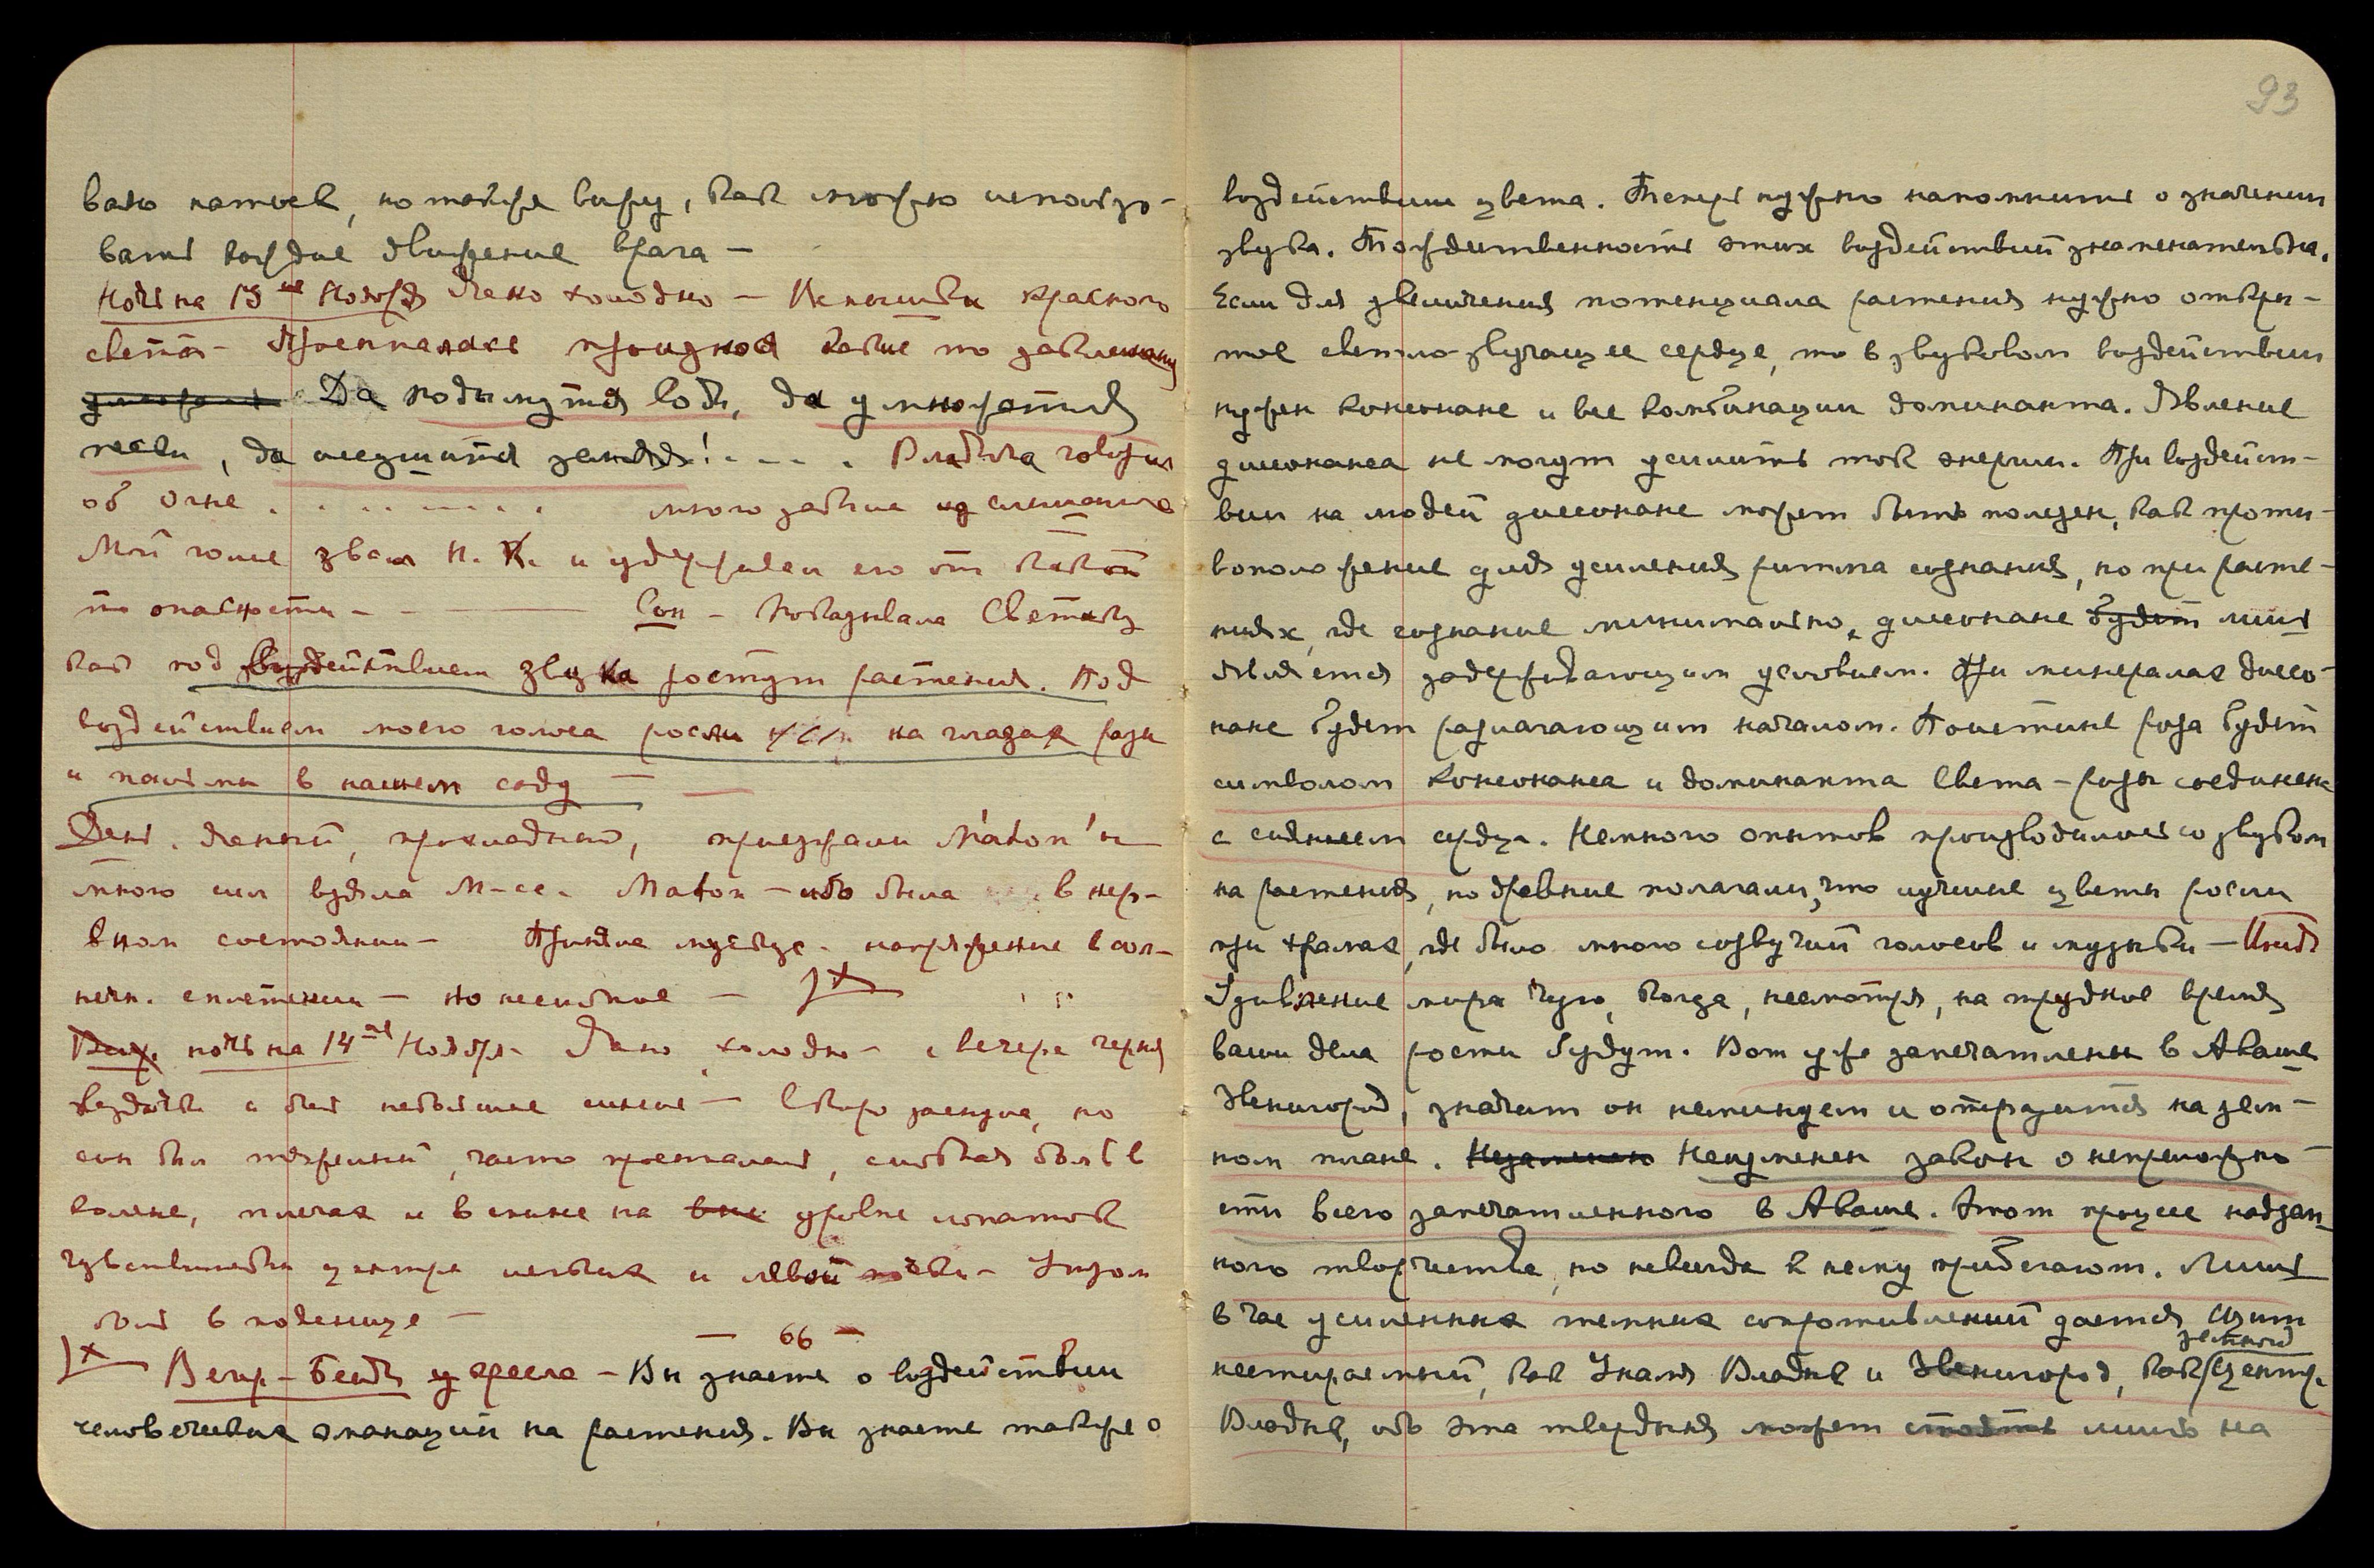 вано натиск, но также вижу, как можно использо-
вать каждое движение врага —
Ночь на 13ое Ноября Ясно холодно — Вспышки красного
света — Просыпаясь произнося какие то
Да подымутся воды, да умножатся
пески, да иссушится земля! . . . . Владыка говорил
об огне . . . . . . . . много забыла из слышанного
Мой голос звал Н. К. и удерживал его от какой
то опасности — Сон — Показывала Светику
как под воздействием звука растут растения. Под
воздействием моего голоса росли на глазах розы
и пальмы в нашем саду —
День. Ясный, прохладный, приезжали Mahon'ы
много сил взяла M-ce. Mahon — ибо была в нер-
вном состоянии — Приняла мускус. напряжение в сол-
нечн. сплетении — но несильное —
Веч. ночь на 14ое Ноября — Ясно холодно — с вечера черная
звездочка и был небольшое синее — Скоро заснула, но
сон был тяжелый, часто просыпалась, сильная боль в
колене, плечах и в спине на вые уровне лопаток
чувствительны центра легких и левой почки — Утром
боль в пояснице —
— 66 —
Вечер — Беседа у кресла — Вы знаете о воздействии
человеческих эманаций на растения. Вы знаете также о
93
воздействии цвета. Теперь нужно напомнить о значении
звука. Тождественность этих воздействий знаменательна.
Если для увеличения потенциала растения нужно откры-
тое светло-звучащее сердце, то в звуковом воздействии
нужен консонанс и все комбинации доминанта. Явление
диссонанса не могут усилить ток энергии. При воздейст-
вии на людей диссонанс может быть полезен, как проти-
воположение для усиления ритма сознания, но при расте-
ниях, где сознание минимально, диссонанс будет лишь
является задерживающим условием. При минералах диссо-
нанс будет разлагающим началом. Поистине роза будет
символом консонанса и доминанта Света — розы соединена
с сиянием сердца. Немного опытов производилось со звуком
на растения, но древние полагали, что лучшие цветы росли
при храмах, где было много созвучий голосов и музыки —
Удивление мира чую, когда, несмотря, на трудное время
ваши дела расти будут. Вот уже запечатлены в Акаше
Звенигород, значит он неминуем и отразится на зем-
ном плане. Незаменено Неизменен закон о непреложно
сти всего запечатленного в Акаше. Этот процесс надзем-
ного творчества, но не всегда к нему прибегают. Лишь
в час усиленных темных сопротивлений дается Щит
нестираемый, как Знамя Владык и Звенигород, как земной Центр.
Владык, ибо эта твердыня может стоять лишь на